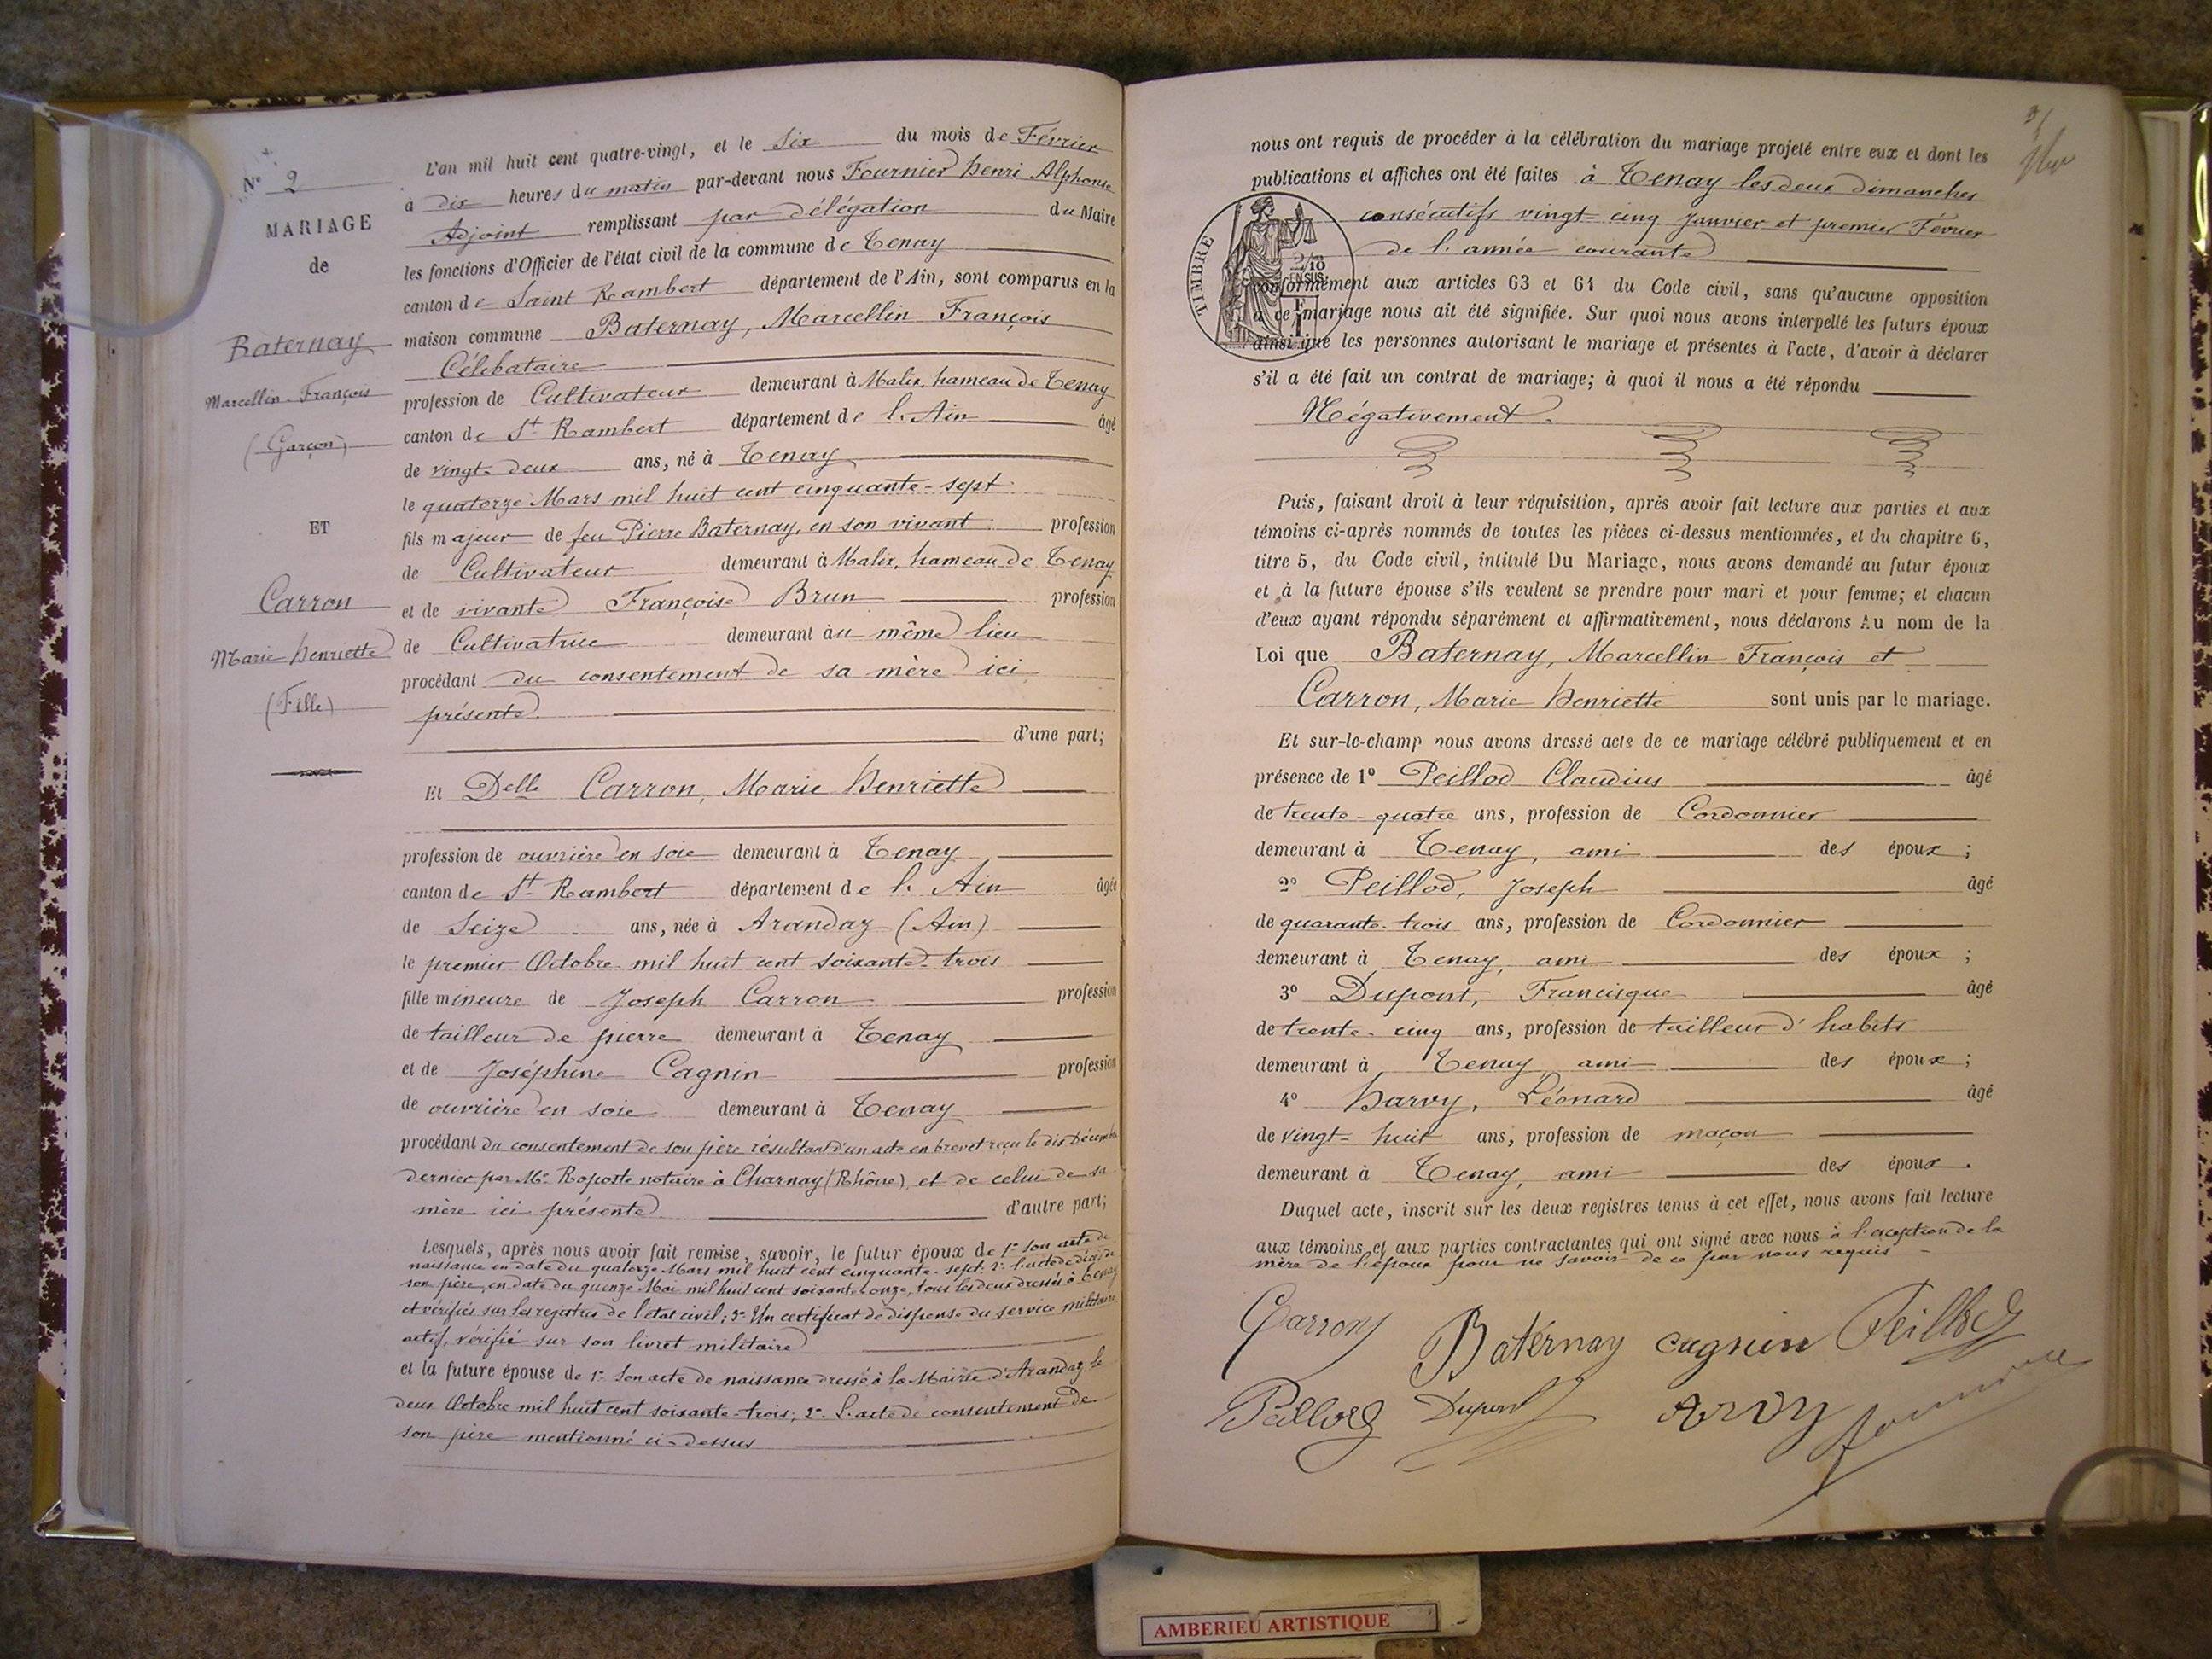 N° 2
MARIAGE
de
Baternay
Marcellin François
(Garçon)
ET
Carron
Marie Henriette
(Fille)
L'an mil huit cent quatre-vingt, et le Six du mois de Février
à dix heures du matin par-devant nous Fournier Henri Alphonse
Adjoint remplissant par délégation du Maire
les fonctions d'Officier de l'état civil de la commune de Tenay
canton de Saint Rambert département de l'Ain, sont comparus en la
maison commune Baternay, Marcellin François
Célibataire
profession de Cultivateur demeurant à Malix, hameau de Tenay
canton de St Rambert département de l'Ain âgé
de vingt-deux ans, né à Tenay
le quatorze Mars mil huit cent cinquante-sept
fils majeur de feu Pierre Baternay, en son vivant profession
de Cultivateur demeurant à Malix, hameau de Tenay
et de vivante Françoise Brun profession
de Cultivatrice demeurant au même lieu
procédant du consentement de sa mère ici
présente.
d'une part;
Et Delle Carron, Marie Henriette
profession de ouvrière en soie demeurant à Tenay
canton de St Rambert département de l'Ain âgée
de Seize ans, née à Arandaz (Ain)
le premier Octobre mil huit cent soixante-trois
fille mineure de Joseph Carron profession
de tailleur de pierre demeurant à Tenay
et de Joséphine Cagnin profession
de ouvrière en soie demeurant à Tenay
procédant du consentement de son père résultant d'un acte en brevet reçu le dix Décembre
dernier par Me Roposte notaire à Charnay (Rhône), et de celui de sa
mère ici présente d'autre part;
Lesquels, après nous avoir fait remise, savoir, le futur époux de 1° Son acte de
naissance en date du quatorze Mars mil huit cent cinquante-sept. 2° l'acte de décès de
son père, en date du quinze Mai mil huit cent soixante-onze, tous les deux dressés à Tenay
et vérifiés sur les registres de l'état civil; 3° Un certificat de dispense du service militaire
actif, vérifié sur son livret militaire
et la future épouse de 1° Son acte de naissance dressé à la Mairie d'Arandaz le
deux Octobre mil huit cent soixante-trois; 2° L'acte de consentement de
son père mentionné ci-dessus
nous ont requis de procéder à la célébration du mariage projeté entre eux et dont les
publications et affiches ont été faites à Tenay les deux dimanches
consécutifs vingt-cinq Janvier et premier Février
de l'année courante
TIMBRE
2/10
EN SUS
conformément aux articles 63 et 64 du Code civil, sans qu'aucune opposition
à ce mariage nous ait été signifiée. Sur quoi nous avons interpellé les futurs époux
ainsi que les personnes autorisant le mariage et présentes à l'acte, d'avoir à déclarer
s'il a été fait un contrat de mariage; à quoi il nous a été répondu
Négativement.
Puis, faisant droit à leur réquisition, après avoir fait lecture aux parties et aux
témoins ci-après nommés de toutes les pièces ci-dessus mentionnées, et du chapitre 6,
titre 5, du Code civil, intitulé Du Mariage, nous avons demandé au futur époux
et à la future épouse s'ils veulent se prendre pour mari et pour femme; et chacun
d'eux ayant répondu séparément et affirmativement, nous déclarons Au nom de la
Loi que Baternay, Marcellin François et
Carron, Marie Henriette sont unis par le mariage.
Et sur-le-champ nous avons dressé acte de ce mariage célébré publiquement et en
présence de 1° Peillod Claudius âgé
de trente-quatre ans, profession de Cordonnier
demeurant à Tenay, ami des époux;
2° Peillod, Joseph âgé
de quarante-trois ans, profession de Cordonnier
demeurant à Tenay, ami des époux;
3° Dupont, Francisque âgé
de trente-cinq ans, profession de tailleur d'habits
demeurant à Tenay ami des époux;
4° Harvy, Léonard âgé
de vingt-huit ans, profession de maçon
demeurant à Tenay, ami des époux.
Duquel acte, inscrit sur les deux registres tenus à cet effet, nous avons fait lecture
aux témoins et aux parties contractantes qui ont signé avec nous à l'exception de la
mère de l'époux pour ne savoir de ce par nous requis
Carron Baternay cagnin Peillod
Peillod Dupont Arvy Fournier
AMBERIEU ARTISTIQUE